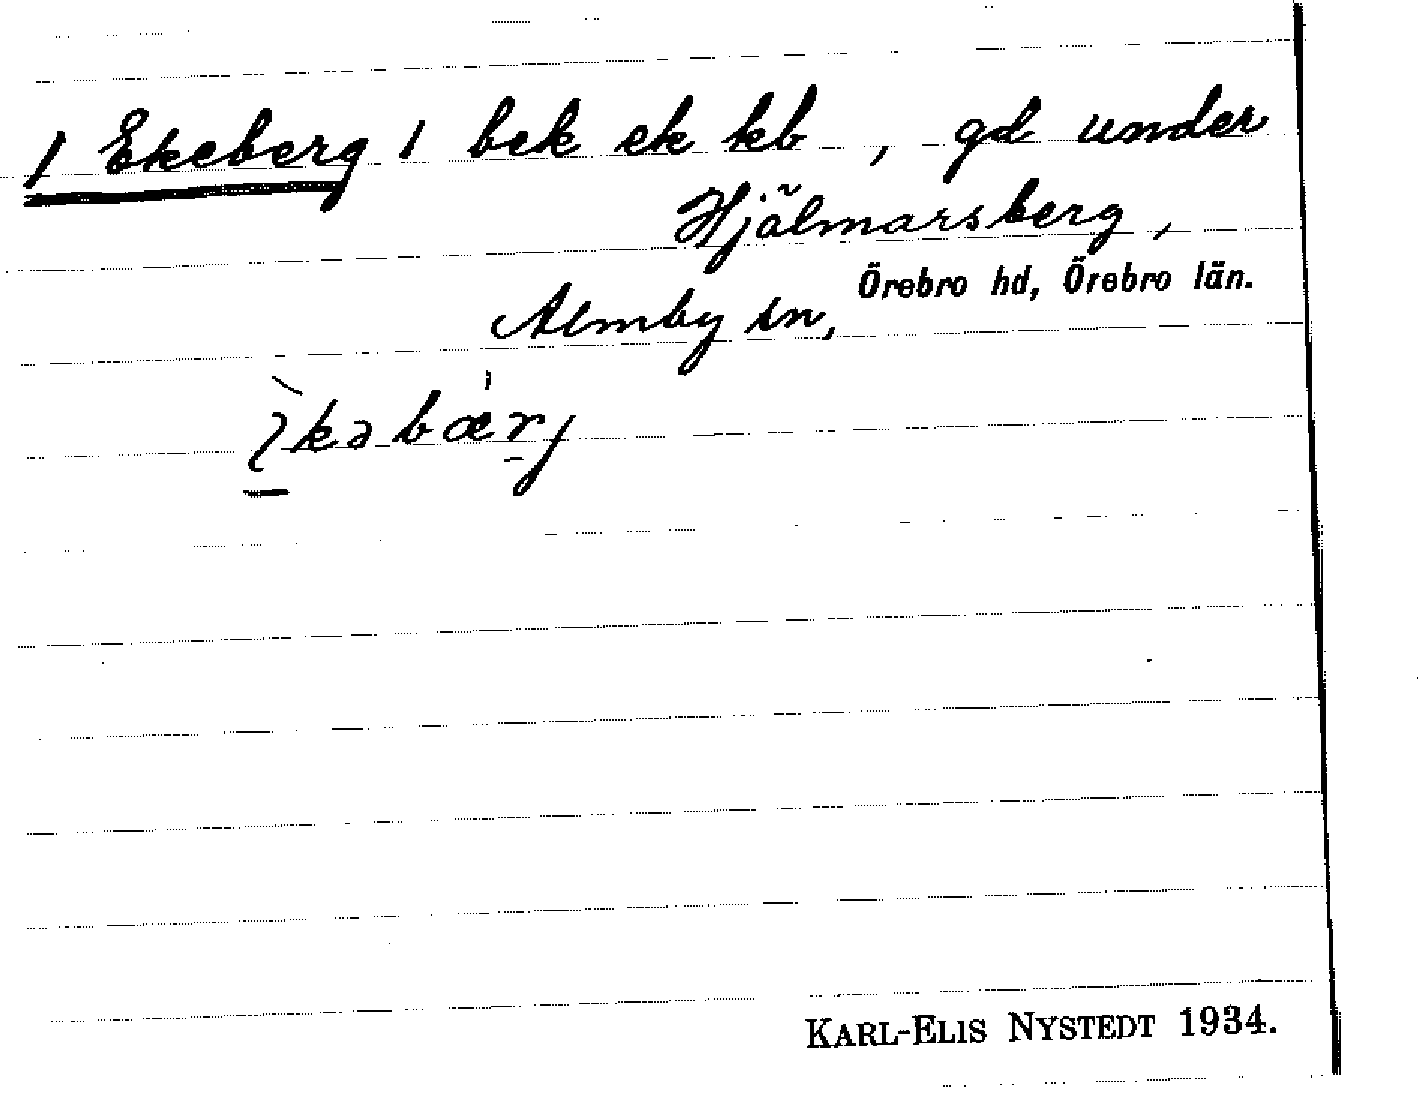 / Ekeberg / bek ek kb, gd under
Hjälmarsberg,
Örebro hd, Örebro län.
Almby sn,
ɩ̀kəbær̩j
KARL-ELIS NYSTEDT 1934.